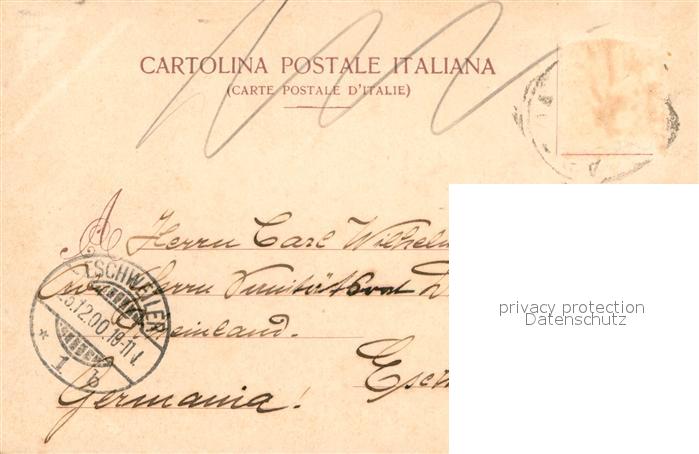 CARTOLINA POSTALE ITALIANA
(CARTE POSTALE D'ITALIE)
A
Herrn Carl Wilhelm
Herrn Sanitätsrat
Rheinland.
Esch
Germania!
ESCHWEILER
.12.00.
* 1 b
privacy protection
Datenschutz